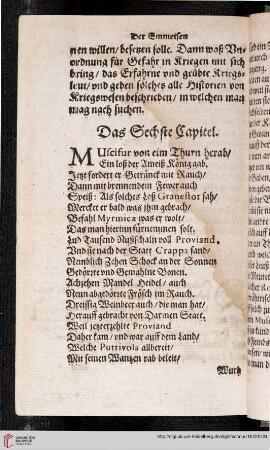 Der Emmeisen
nen willen/ besetzen solle. Dann waß Vn-
ordnung für Gefahr in Kriegen mit sich
bring/ das Erfahrne vnd geübte Kriegs-
leut/ vnd geben solches alle Historien von
Kriegswesen beschrieben/ in welchen man
mag nach suchen.
Das Sechste Capitel.
MUscifur von eim Thurn herab/
Ein loß der Ameiß König gab.
Jetzt fordert er Getränck mit Rauch/
Dann mit brennendem Fewer auch
Speiß: Als solches Loß Granestor sah/
Mercket er bald was ihm gebrach/
Befahl Myrmicæ was er wolt/
Das man hierinn fürnemmen solt.
Lud Tausend Nußschaln voll Proviand.
Vnd ist nach der Statt Crapps sand/
Nemblich Zehen Schock an der Sonnen
Gedörrte vnd Gemahlne Bonen.
Achzehen Mandel Heidel/ auch
Neun abgedörrte Frösch im Rauch.
Dreissig Weinbeer auch/ die man hat/
Herauff gebracht von Darmen Statt.
Weil jetzerzehlte Proviand
Daher kam/ vnd war auff dem Land/
Welche Puttrivola allbereit/
Mit seinen Wantzen rab beleit/
Wurd